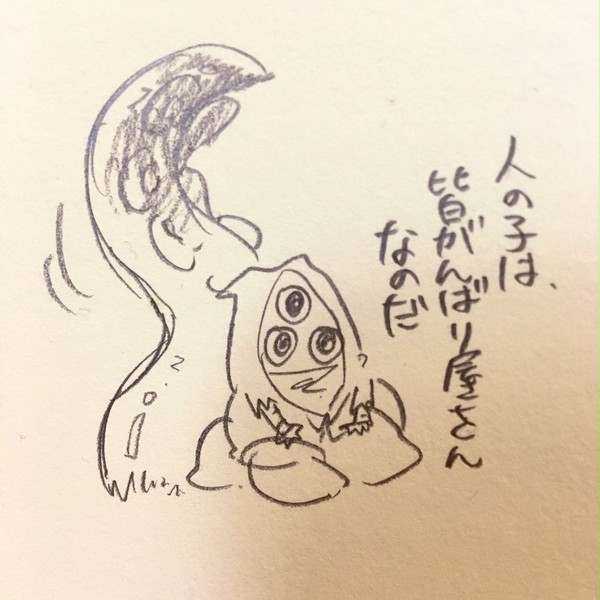 人の子は、
皆がんばり屋さん
なのだ